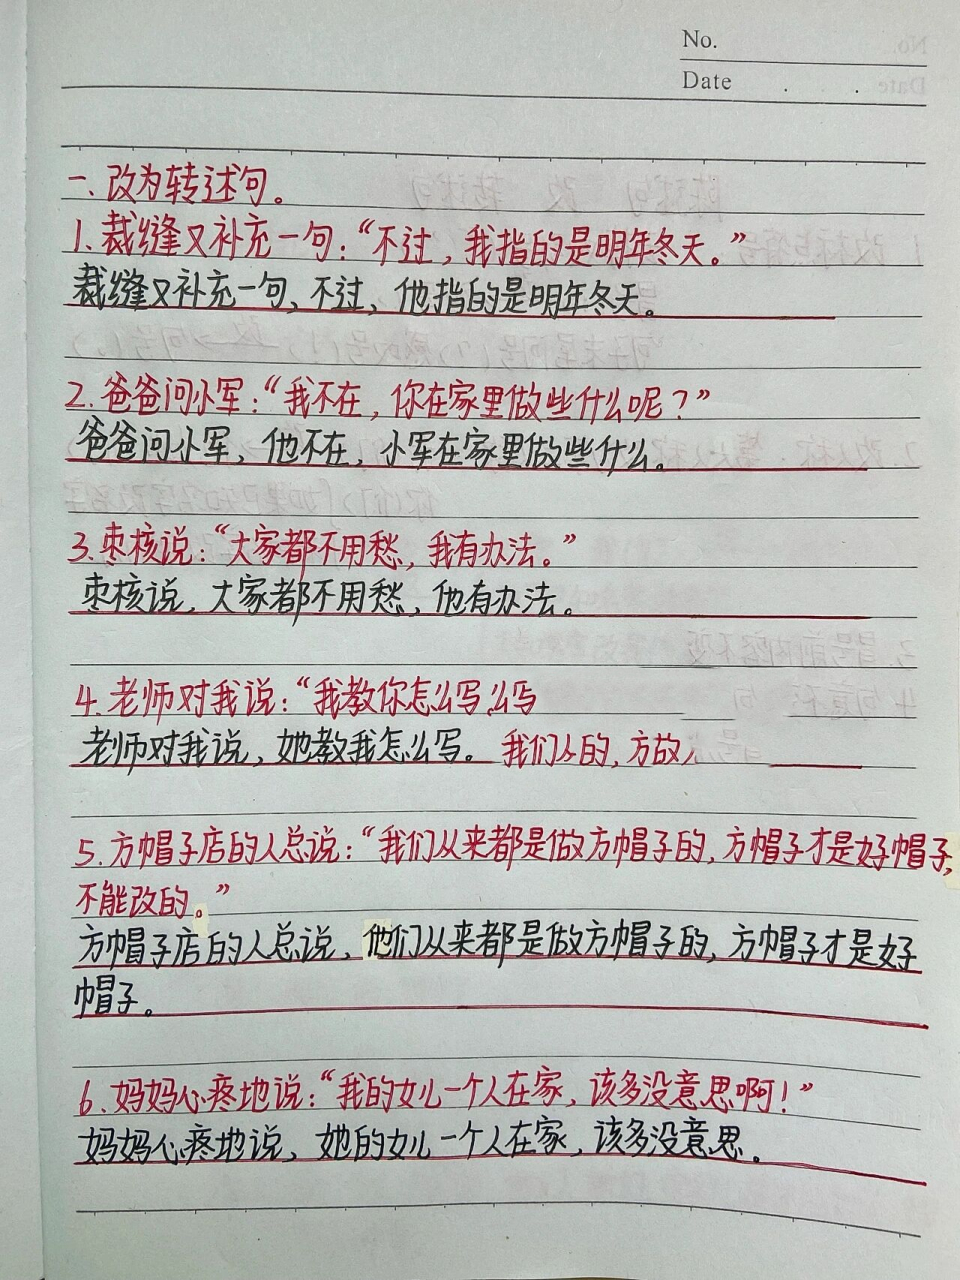 No.
Date
一、改为转述句。
1.裁缝又补充一句：“不过，我指的是明年冬天。”
裁缝又补充一句，不过，他指的是明年冬天。
2.爸爸问小军：“我不在，你在家里做些什么呢？”
爸爸问小军，他不在，小军在家里做些什么。
3.枣核说：“大家都不用愁，我有办法。”
枣核说，大家都不用愁，他有办法。
4.老师对我说：“我教你怎么写么写
老师对我说，她教我怎么写。我们么的，方故
5.方帽子店的人总说：“我们从来都是做方帽子的，方帽子才是好帽子，
不能改的。”
方帽子店的人总说，他们从来都是做方帽子的，方帽子才是好
帽子。
6.妈妈心疼地说：“我的女儿一个人在家，该多没意思啊！”
妈妈心疼地说，她的女儿一个人在家，该多没意思。